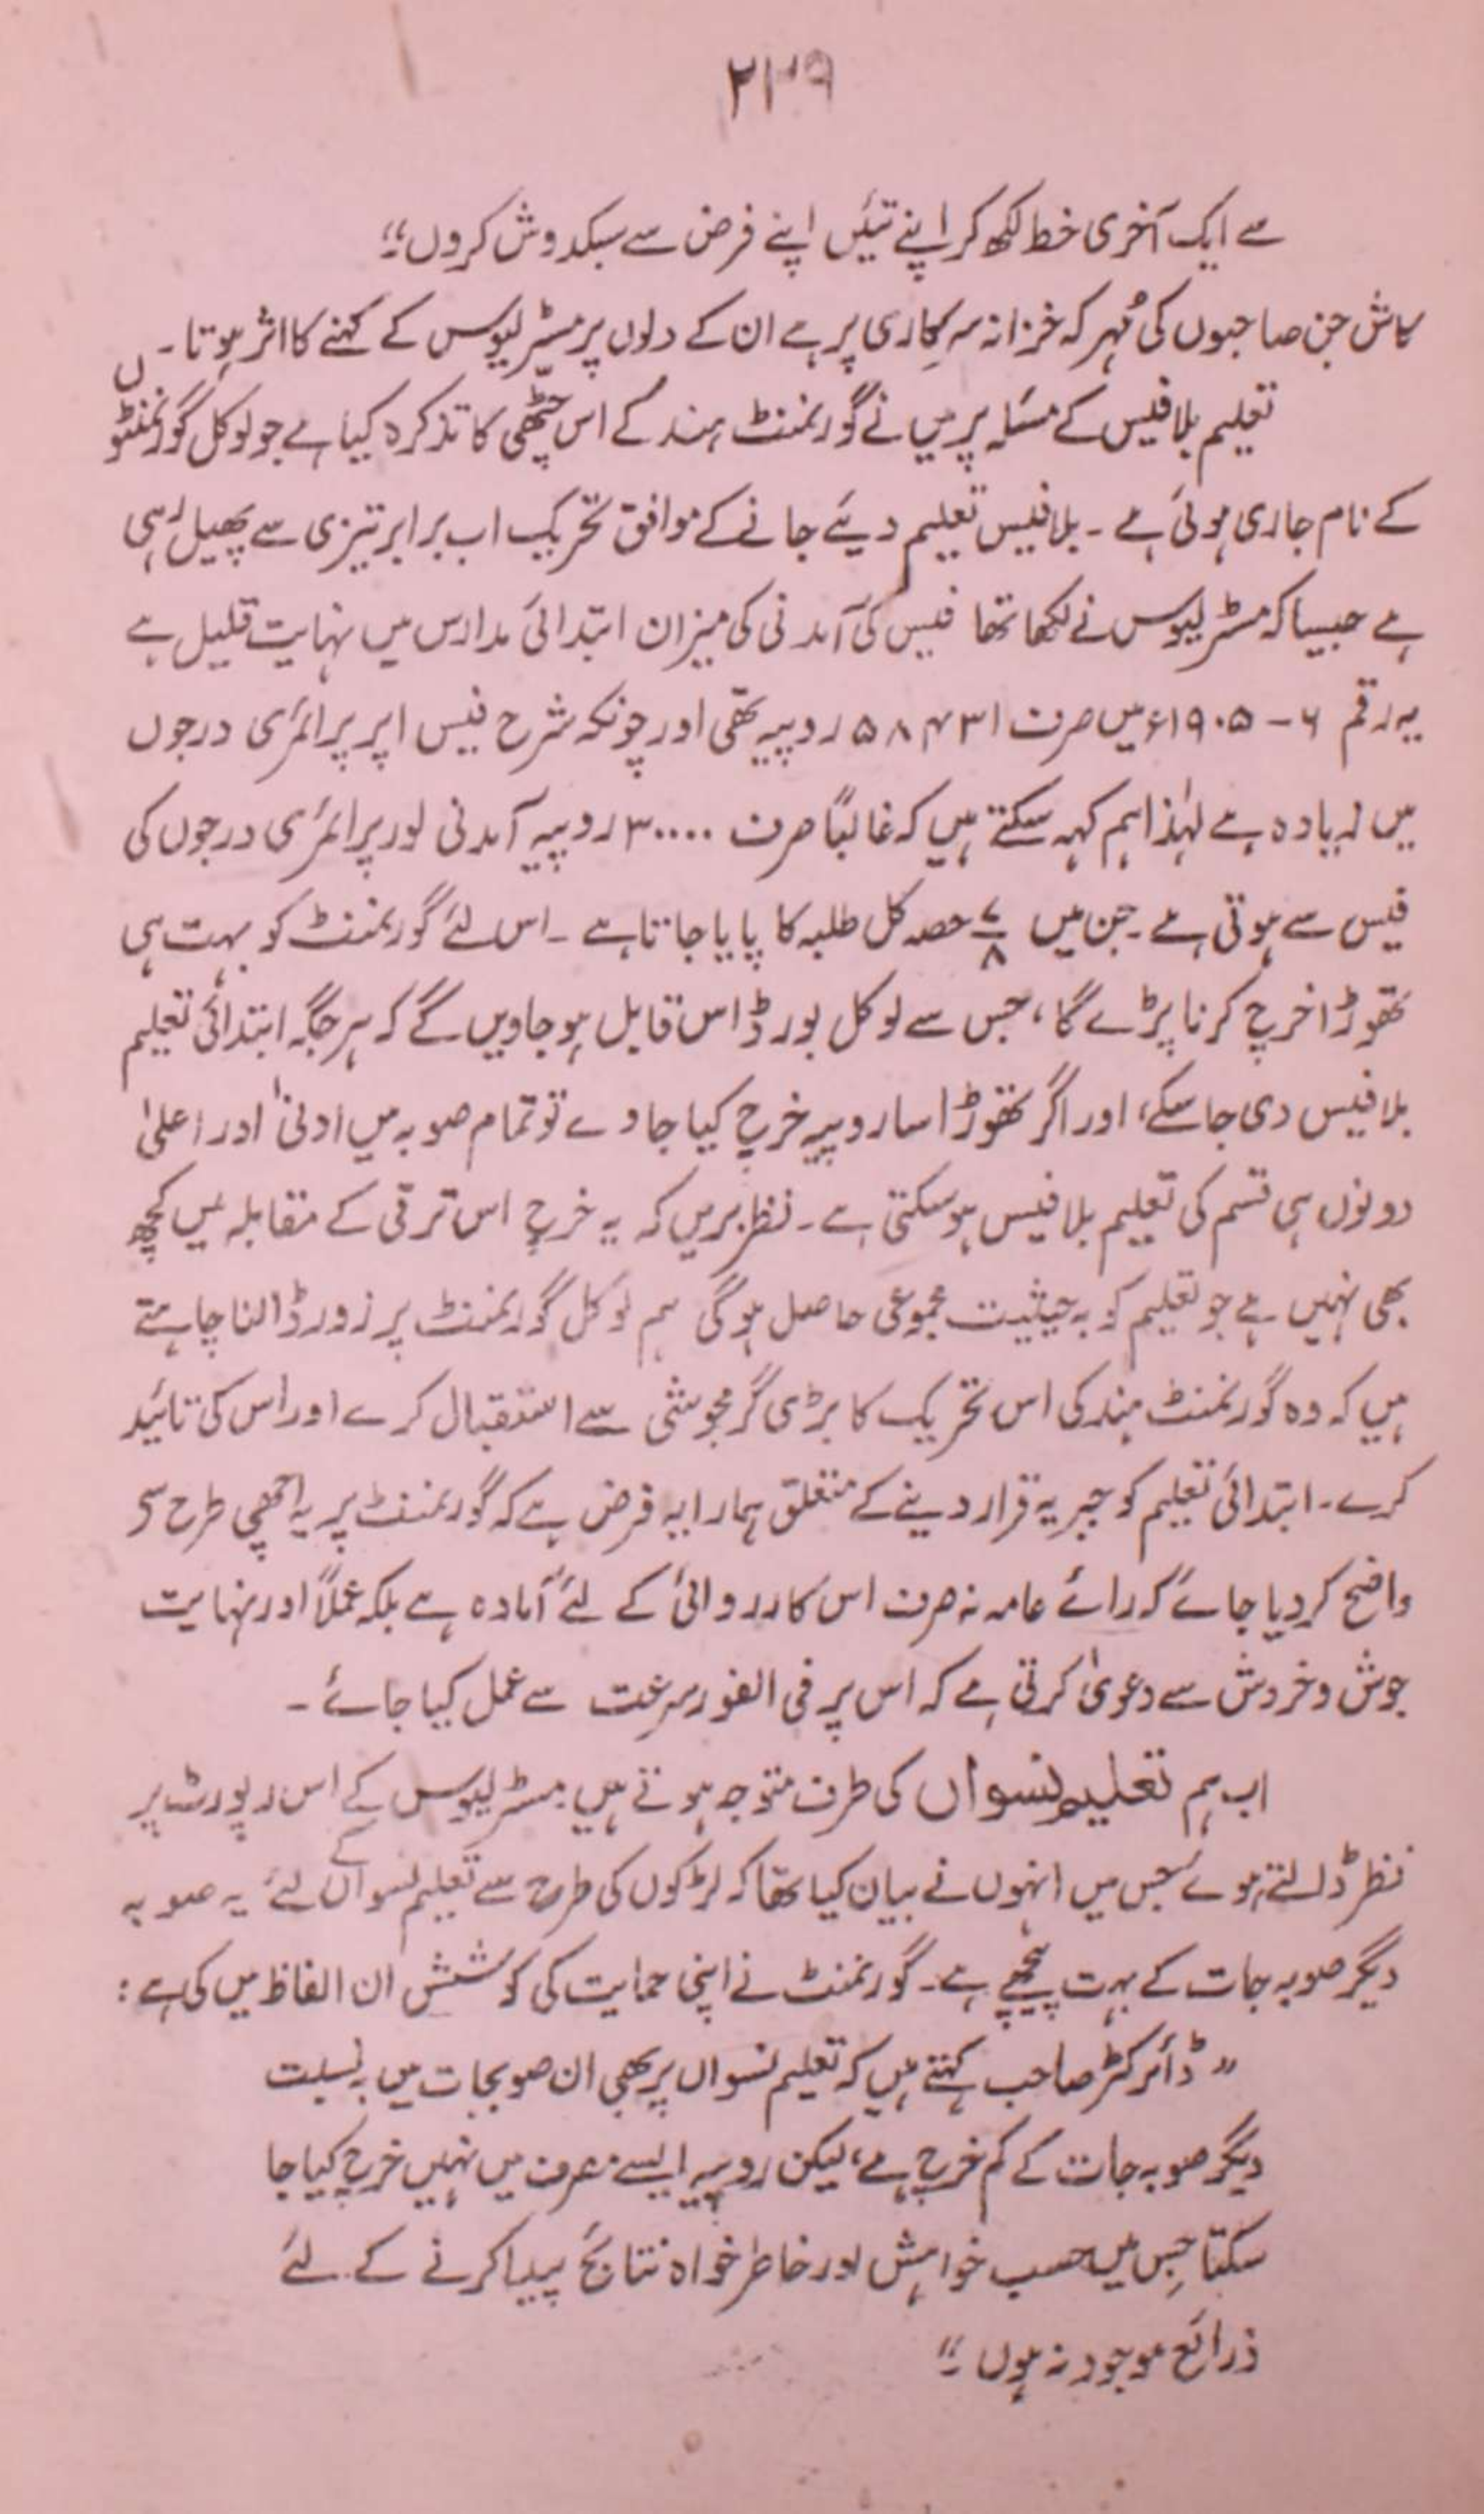 ۲۳۹
سے ایک آخری خط لکھ کر اپنے تئیں اپنے فرض سے سبکدوش کروں"
کاش جن صاحبوں کی مُہر کہ خزانہ سرکاری پر ہے ان کے دلوں پر مسٹر لیوس کے کہنے کا اثر ہوتا ۔
تعلیم بلا فیس کے مسئلہ پر میں نے گورنمنٹ ہند کے اس چٹھی کا تذکرہ کیا ہے جو لوکل گورنمنٹوں
کے نام جاری ہوئی ہے ۔ بلا فیس تعلیم دیئے جانے کے موافق تحریک اب برابر تیزی سے پھیل رہی
ہے جیسا کہ مسٹر لیوس نے لکھا تھا فیس کی آمدنی کی میزان ابتدائی مدارس میں نہایت قلیل ہے
یہ رقم ۶ – ۱۹۰۵ء میں صرف ۵۸۴۳۱ روپیہ تھی اور چونکہ شرح فیس اپر پرائمری درجوں
میں زیادہ ہے لہٰذا ہم کہہ سکتے ہیں کہ غالباً صرف ۳۰۰۰۰ روپیہ آمدنی لور پرائمری درجوں کی
فیس سے ہوتی ہے ۔ جن میں ۷/۸ حصہ کل طلبہ کا پایا جاتا ہے ۔ اس لئے گورنمنٹ کو بہت ہی
تھوڑا خرچ کرنا پڑے گا، جس سے لوکل بورڈ اس قابل ہو جاویں گے کہ ہر جگہ ابتدائی تعلیم
بلا فیس دی جا سکے، اور اگر تھوڑا سا روپیہ خرچ کیا جاوے تو تمام صوبہ میں ادنیٰ اور اعلیٰ
دونوں ہی قسم کی تعلیم بلا فیس ہو سکتی ہے ۔ نظر بریں کہ یہ خرچ اس ترقی کے مقابلہ میں کچھ
بھی نہیں ہے جو تعلیم کو بہ حیثیت مجموعی حاصل ہو گی ہم لوکل گورنمنٹ پر زور ڈالنا چاہتے
ہیں کہ وہ گورنمنٹ ہند کی اس تحریک کا بڑی گرمجوشی سے استقبال کرے اور اس کی تائید
کرے ۔ ابتدائی تعلیم کو جبریہ قرار دینے کے متعلق ہمارا یہ فرض ہے کہ گورنمنٹ پر یہ اچھی طرح سے
واضح کر دیا جائے کہ رائے عامہ نہ صرف اس کارروائی کے لئے آمادہ ہے بلکہ عملاً اور نہایت
جوش و خروش سے دعویٰ کرتی ہے کہ اس پر فی الفور سرعت سے عمل کیا جائے ۔
اب ہم تعلیم نسواں کی طرف متوجہ ہوتے ہیں مسٹر لیوس کے اس رپورٹ پر
نظر ڈالتے ہوئے جس میں انہوں نے بیان کیا تھا کہ لڑکوں کی طرح سے تعلیم نسواں کے لئے یہ صوبہ
دیگر صوبہ جات کے بہت پیچھے ہے ۔ گورنمنٹ نے اپنی حمایت کی کوشش ان الفاظ میں کی ہے :
"ڈائرکٹر صاحب کہتے ہیں کہ تعلیم نسواں پر بھی ان صوبجات میں بہ نسبت
دیگر صوبہ جات کے کم خرچ ہے، لیکن روپیہ ایسے مصرف میں نہیں خرچ کیا جا
سکتا جس میں حسب خواہش اور خاطر خواہ نتائج پیدا کرنے کے لئے
ذرائع موجود نہ ہوں ۔"